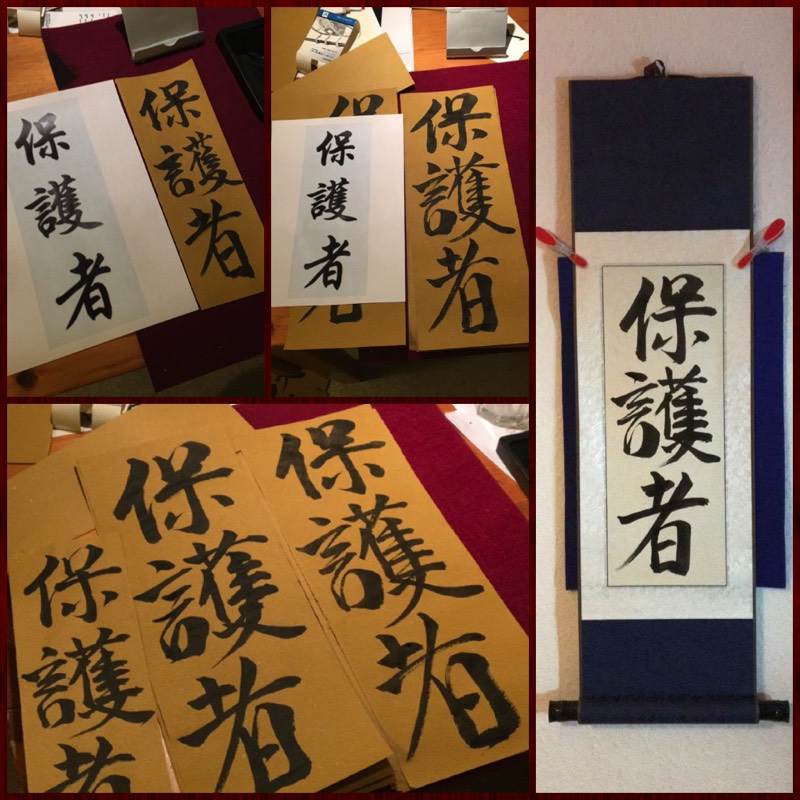 保護者
保護者
保
保護者
保護者
保護者
保護者
保護者
保護者